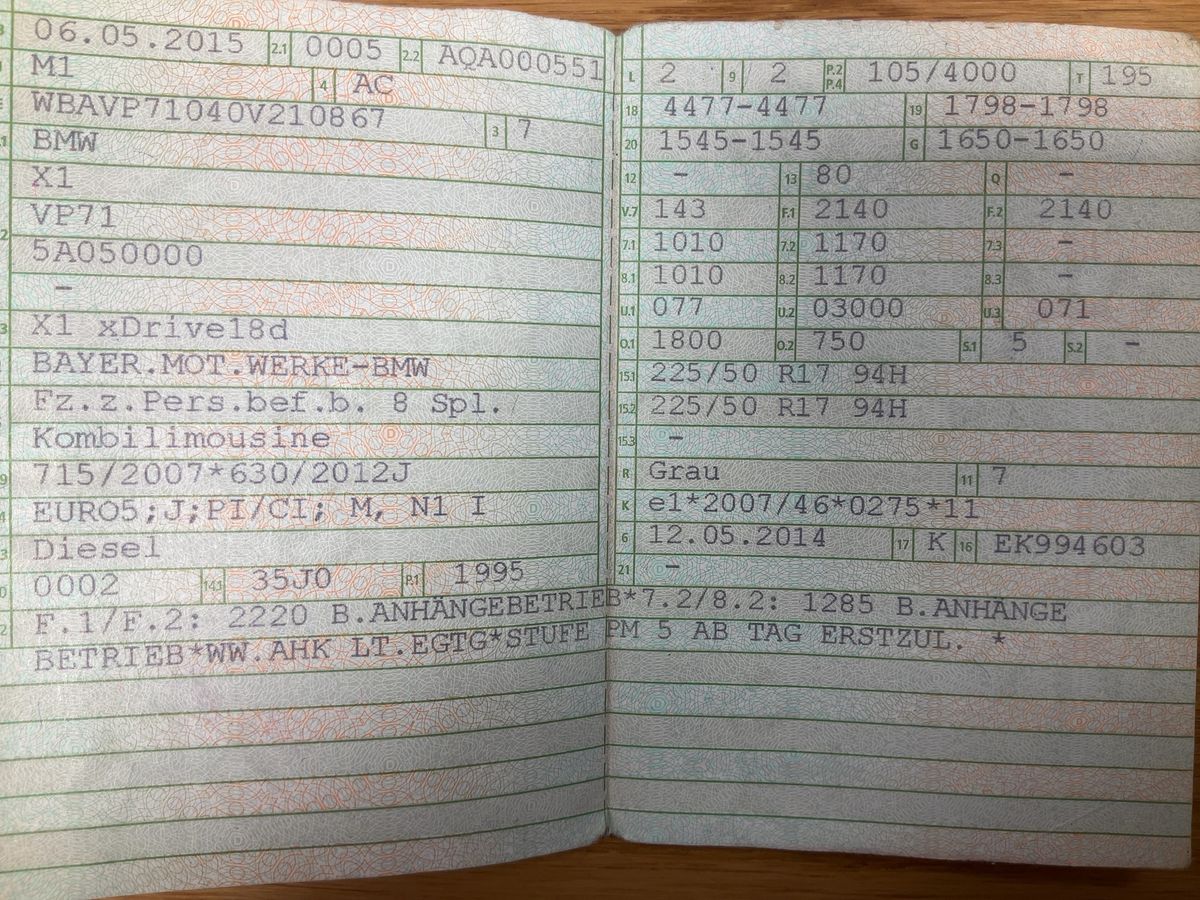 06.05.2015 2.1 0005 2.2 AQA000551
M1 4 AC
WBAVP71040V210867 3 7
BMW
X1
VP71
5A050000
-
X1 xDrive18d
BAYER.MOT.WERKE-BMW
Fz.z.Pers.bef.b. 8 Spl.
Kombilimousine
715/2007*630/2012J
EURO5;J;PI/CI; M, N1 I
Diesel
0002 14.1 35J0 P.1 1995
L 2 9 2 P.2 P.4 105/4000 T 195
18 4477-4477 19 1798-1798
20 1545-1545 G 1650-1650
12 - 13 80 Q -
V.7 143 F.1 2140 F.2 2140
7.1 1010 7.2 1170 7.3 -
8.1 1010 8.2 1170 8.3 -
U.1 077 U.2 03000 U.3 071
O.1 1800 O.2 750 S.1 5 S.2 -
15.1 225/50 R17 94H
15.2 225/50 R17 94H
15.3 -
R Grau 11 7
K e1*2007/46*0275*11
6 12.05.2014 17 K 16 EK994603
21 -
F.1/F.2: 2220 B.ANHÄNGEBETRIEB*7.2/8.2: 1285 B.ANHÄNGE
BETRIEB*WW.AHK LT.EGTG*STUFE PM 5 AB TAG ERSTZUL. *